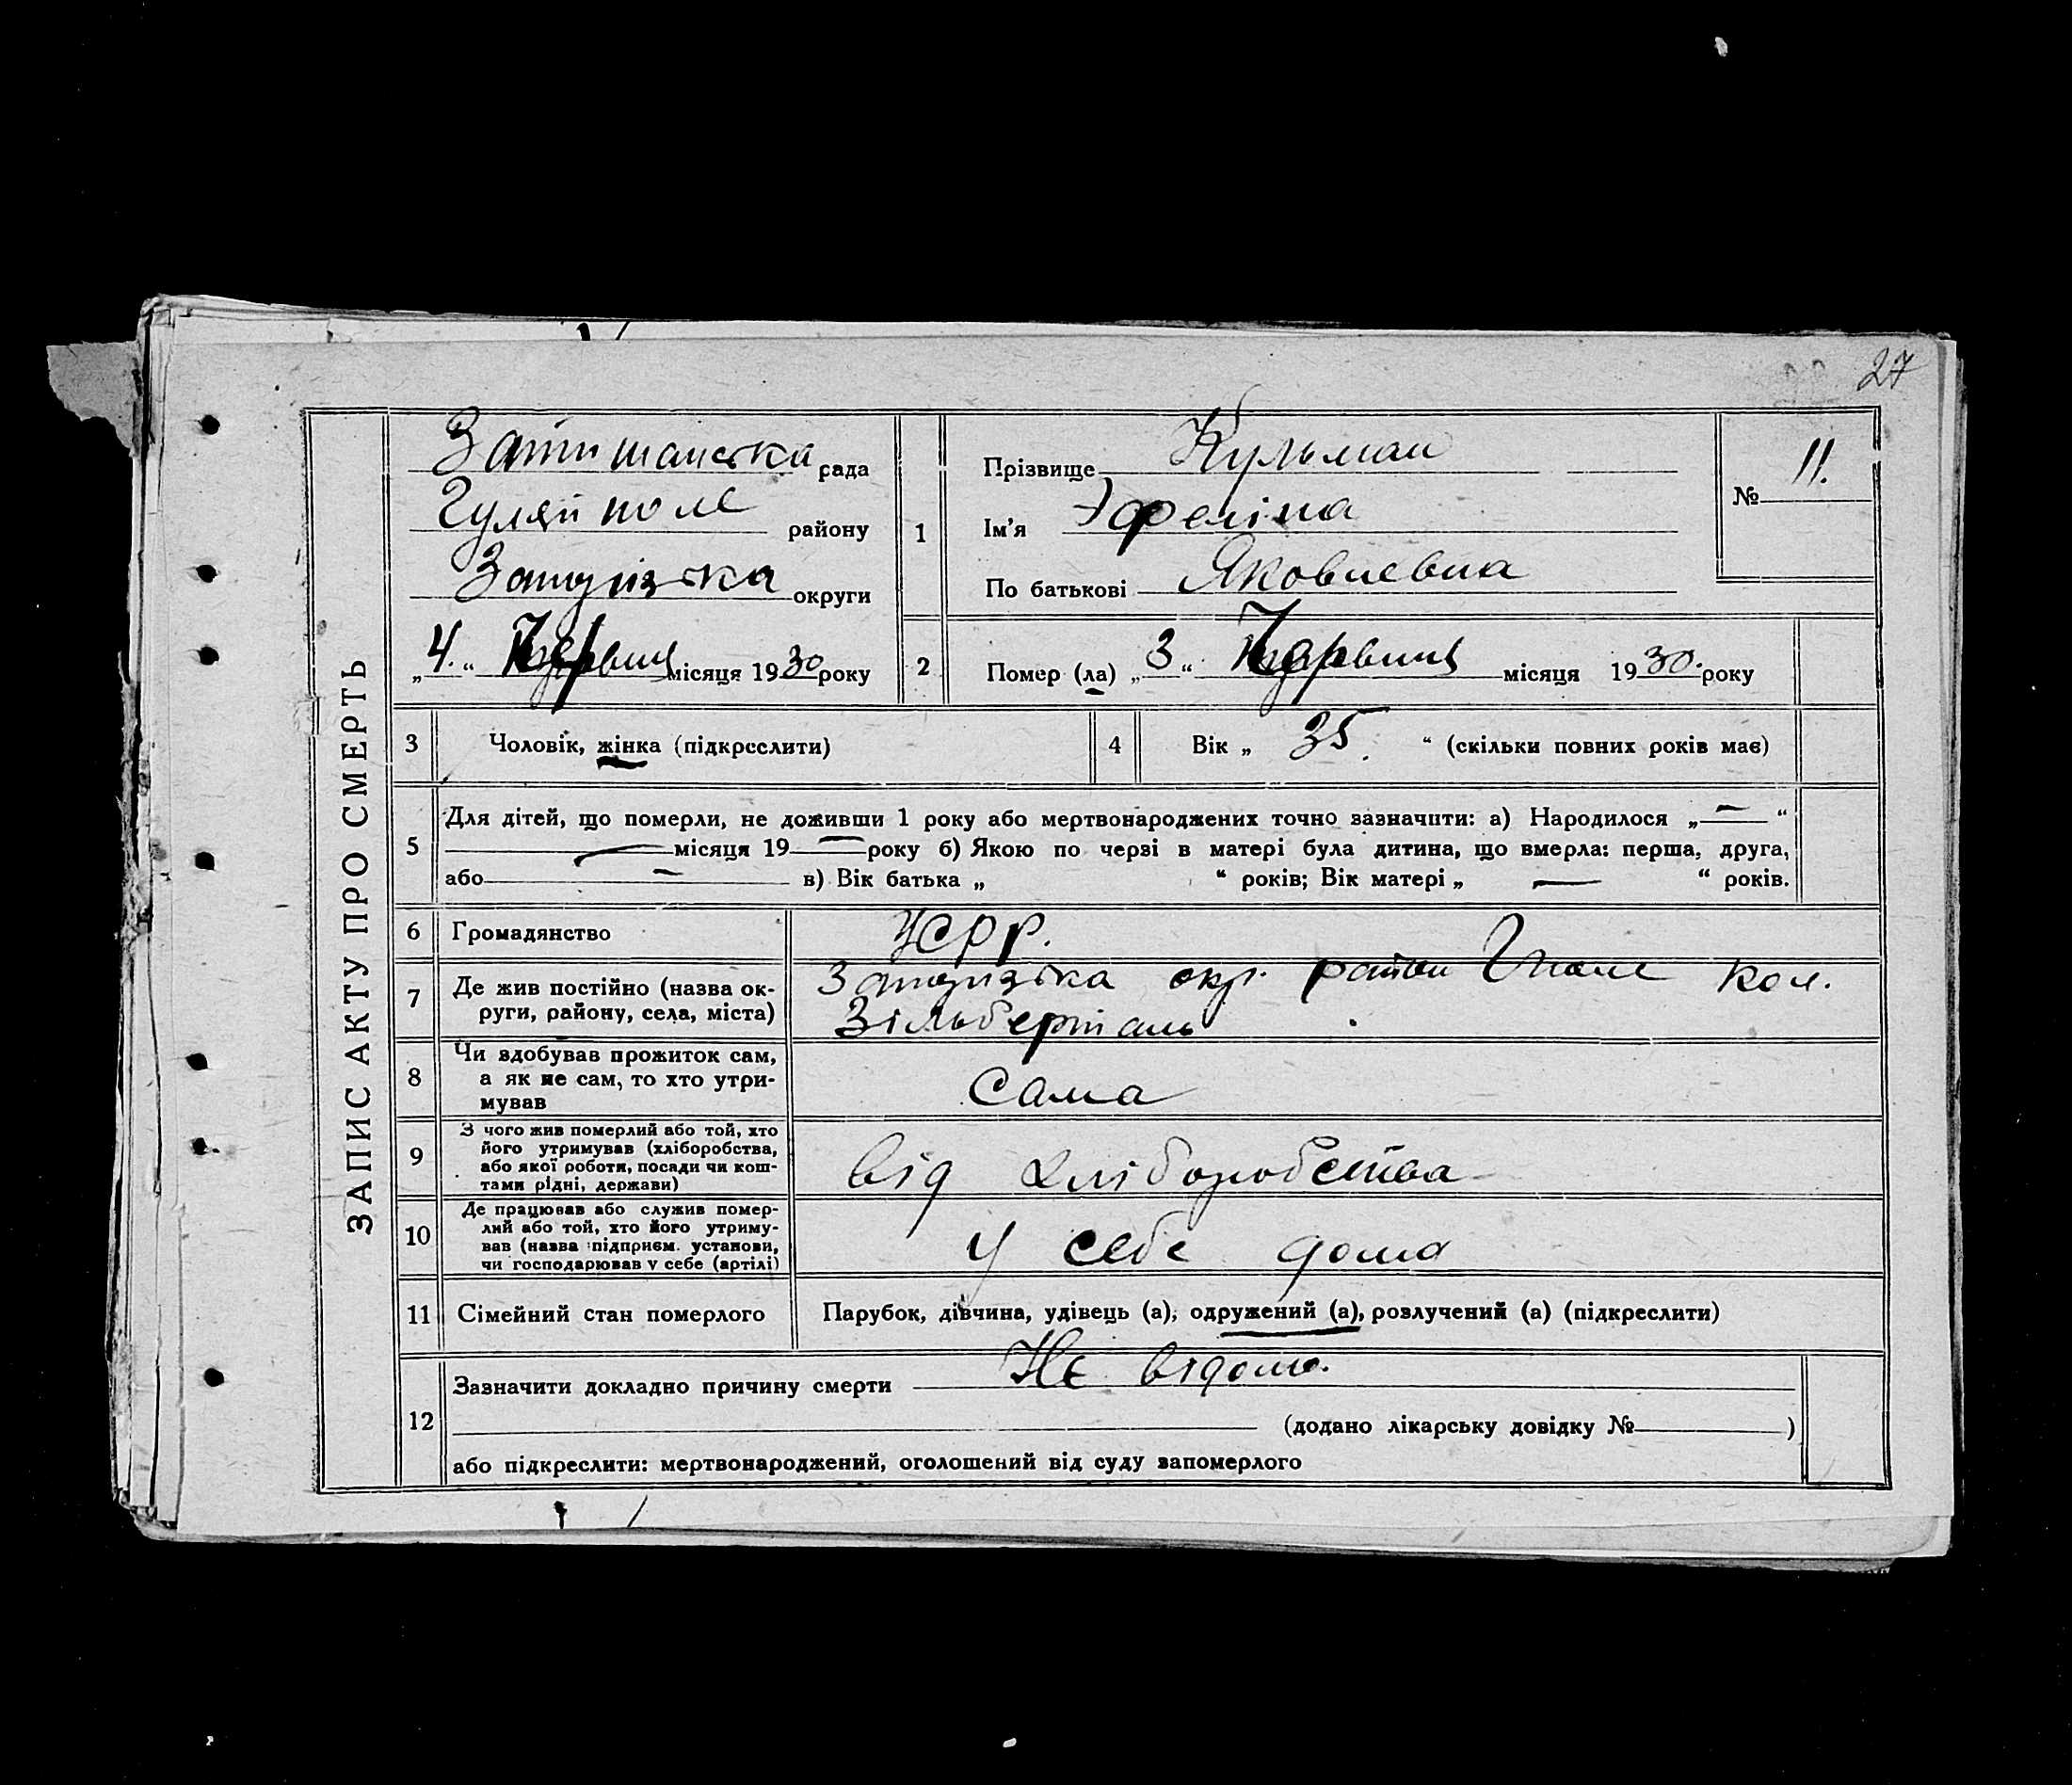 27
ЗАПИС АКТУ ПРО СМЕРТЬ
Затишанська рада
Гуляйполе району
Запорізька округи
„4.“ Червня місяця 1930 року
1
Прізвище Кульман
Ім'я Эфеліна
По батькові Яковлевна
№ 11.
2
Помер (ла) „3“ Червня місяця 1930. року
3 Чоловік, жінка (підкреслити)
4 Вік „ 35. “ (скільки повних років має)
5
Для дітей, що померли, не доживши 1 року або мертвонароджених точно зазначити: а) Народилося „ — “
— місяця 19 — року б) Якою по черзі в матері була дитина, що вмерла: перша, друга,
або — в) Вік батька „ “ років; Вік матері „ — “ років.
6 Громадянство УСРР.
7 Де жив постійно (назва ок-
руги, району, села, міста)
Запорізька окр. район Гполе кол.
Зільберталь
8
Чи здобував прожиток сам,
а як не сам, то хто утри-
мував
Сама
9
З чого жив померлий або той, хто
його утримував (хліборобства,
або якої роботи, посади чи кош-
тами рідні, держави)
від хліборобства
10
Де працював або служив помер-
лий або той, хто його утриму-
вав (назва підприєм. установи,
чи господарював у себе (артілі)
У себе дома
11 Сімейний стан померлого Парубок, дівчина, удівець (а), одружений (а), розлучений (а) (підкреслити)
12
Зазначити докладно причину смерти Не відомо.
(додано лікарську довідку № )
або підкреслити: мертвонароджений, оголошений від суду запомерлого